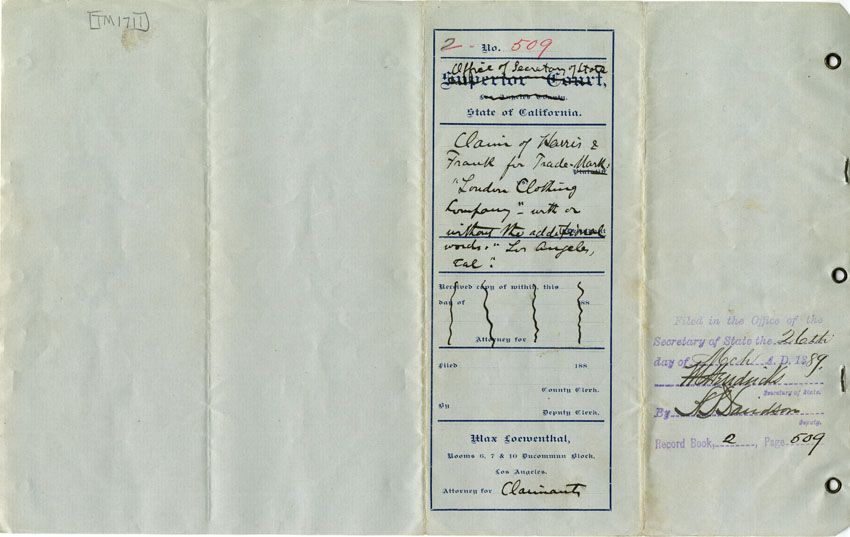 [TM1711]
2 - No. 509
Office of Secretary of State
Superior Court,
Los Angeles County.
State of California.
Claim of Harris &
Frank for Trade-Mark,
"London Clothing
Company" - with or
without the additional
words, "Los Angeles,
Cal".
Received copy of within, this
day of 188
Attorney for
Filed 188
County Clerk.
By
Deputy Clerk.
Max Loewenthal,
Rooms 6, 7 & 10 Ducommun Block,
Los Angeles.
Attorney for Claimants
Filed in the Office of the
Secretary of State the 26th
day of Mch A. D. 1889.
Hendricks
Secretary of State.
By Davidson
Deputy.
Record Book, 2, Page 509